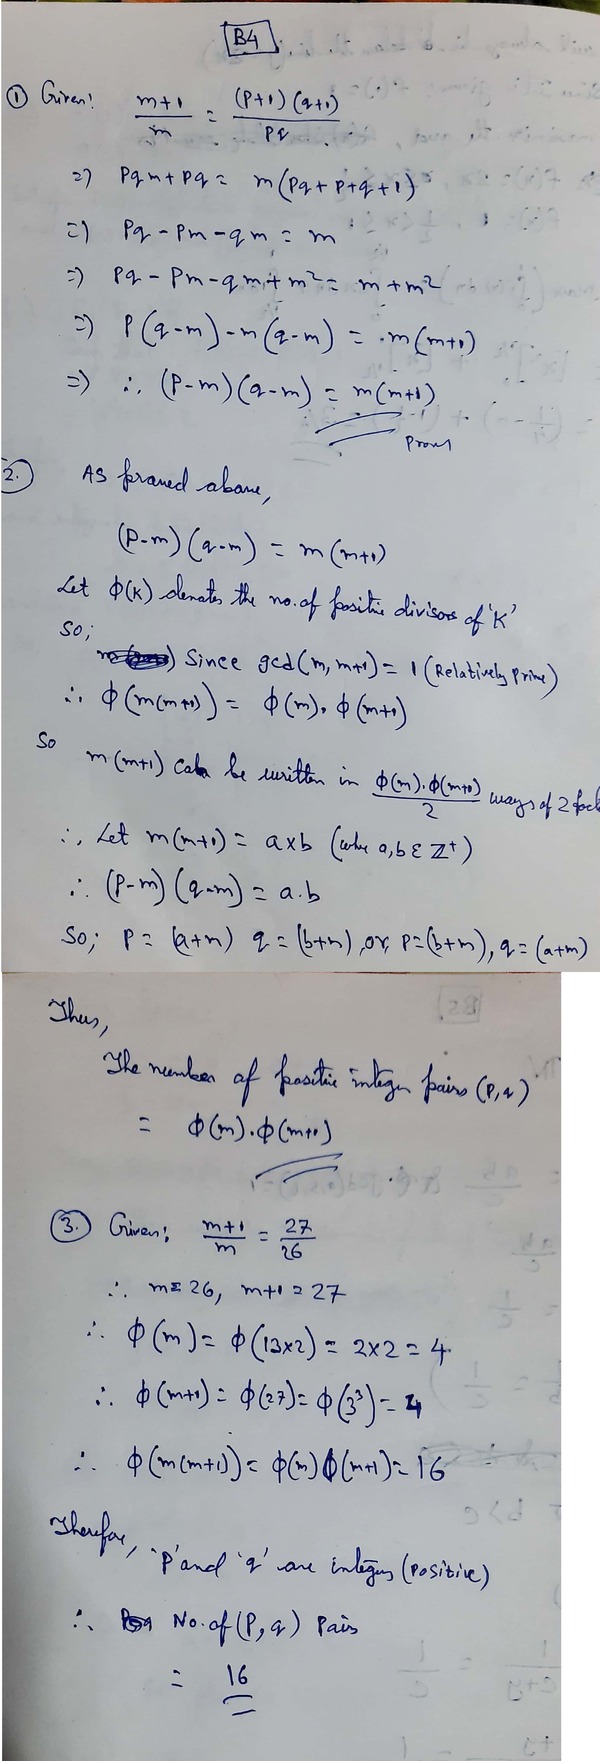 B4
① Given: (m+1)/m = (P+1)(q+1)/Pq
=> Pqm+Pq = m(Pq+P+q+1)
=> Pq-Pm-qm = m
=> Pq-Pm-qm+m² = m+m²
=> P(q-m)-m(q-m) = m(m+1)
=> ∴ (P-m)(q-m) = m(m+1)
Proved
2. As proved above,
(P-m)(q-m) = m(m+1)
Let ϕ(K) denotes the no. of positive divisors of 'K'
So;
Since gcd(m, m+1) = 1 (Relatively Prime)
∴ ϕ(m(m+1)) = ϕ(m). ϕ(m+1)
So
m(m+1) can be written in ϕ(m).ϕ(m+1)/2 ways of 2
∴ Let m(m+1) = a×b (where a,b ∈ Z⁺)
∴ (P-m)(q-m) = a.b
So; P = (a+m) q = (b+m), or, P = (b+m), q = (a+m)
Thus,
The number of positive integer pairs (P,q)
= ϕ(m).ϕ(m+1)
③. Given; (m+1)/m = 27/26
∴ m = 26, m+1 = 27
∴ ϕ(m) = ϕ(13×2) = 2×2 = 4
∴ ϕ(m+1) = ϕ(27) = ϕ(3³) = 4
∴ ϕ(m(m+1)) = ϕ(m)ϕ(m+1) = 16
Therefore, 'P' and 'q' are integers (positive)
∴ No. of (P,q) Pairs
= 16